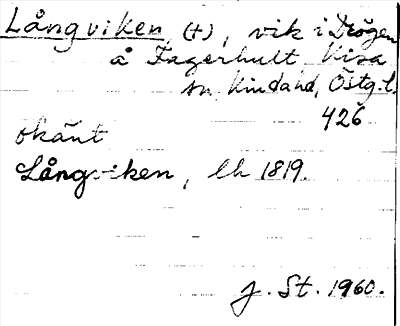 Långviken (†), vik i Drögen
å Fagerhult Kisa
sn Kinda hd, Östg. l.
426
okänt
Långviken, lh 1819.
J. St. 1960.